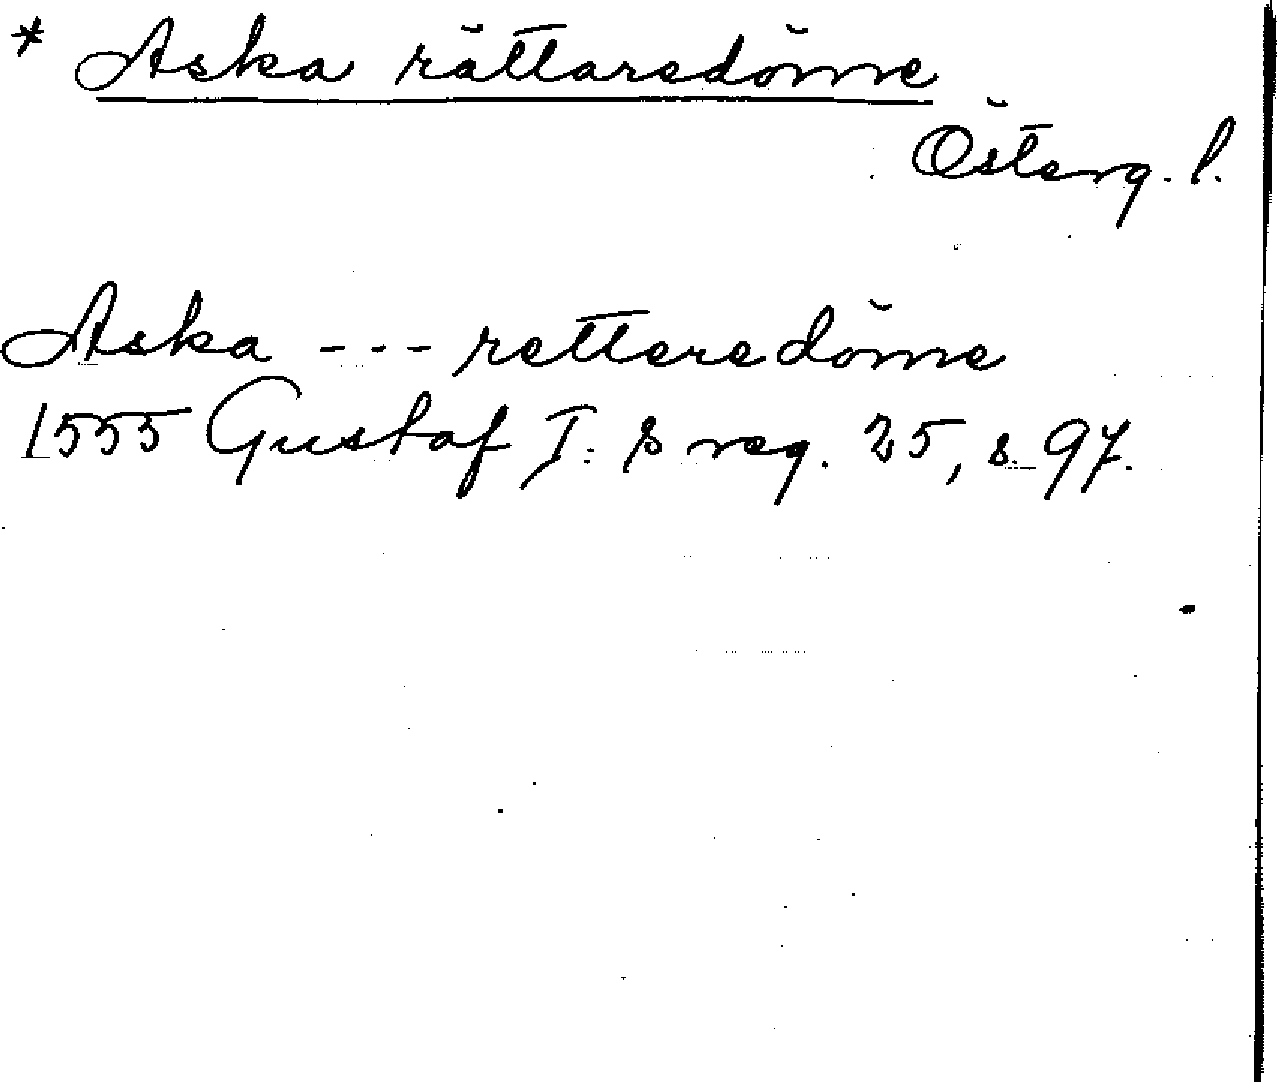 * Aska rättaredöme
Österg. l.
Aska --- rettere döme
1555 Gustaf I:s reg. 25, s. 97.